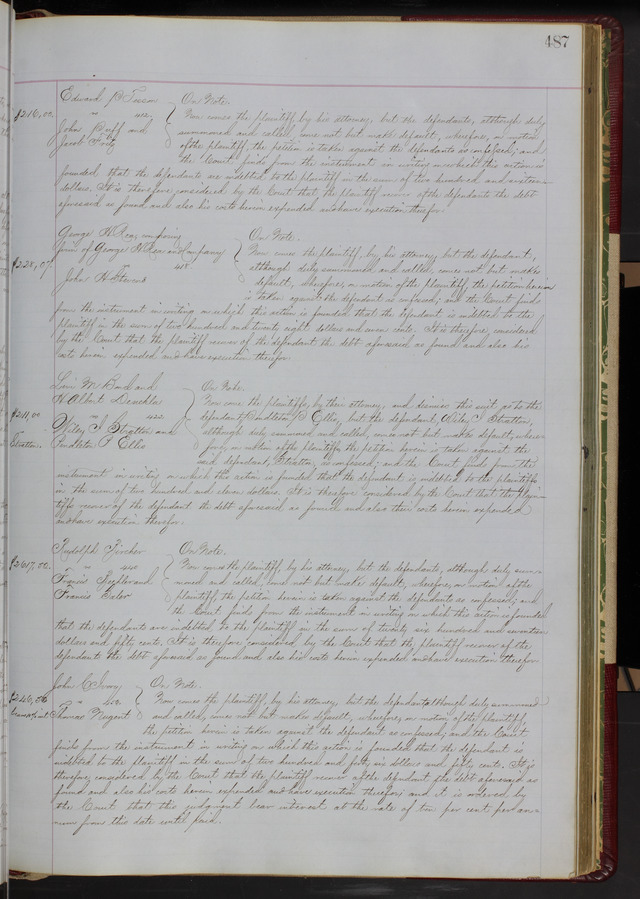 487
Edward B. On Note.
$216,00. " 412, Now comes the plaintiff, by his attorney, but the defendants, although duly
John Ruff and summoned and called, come not but make default, wherefore, on motion
Jacob of the plaintiff, the petition is taken against the defendants as confessed; and
the Court finds from the instrument in writing on which this action is
founded, that the defendants are indebted to the plaintiff in the sum of two hundred and sixteen
dollars. It is therefore considered by the Court that the plaintiff recover of the defendants the debt
aforesaid as found and also his costs herein expended and have execution therefor.
George H. Rea, composing On Note.
firm of George H Rea and Company Now comes the plaintiff, by his attorney, but the defendant,
$228,07. 418 although duly summoned and called, comes not but makes
John H Stevens default, wherefore, on motion of the plaintiff, the petition herein
is taken against the defendant as confessed; and the Court finds
from the instrument in writing on which this action is founded that the defendant is indebted to the
plaintiff in the sum of two hundred and twenty eight dollars and seven cents. It is therefore considered
by the Court that the plaintiff recover of the defendant the debt aforesaid as found and also his
costs herein expended and have execution therefor.
Levi M. and On Note.
H Albert Now come the plaintiffs, by their attorney, and dismiss this suit as to the
$211,00 " 422 defendant Pendleton P Ellis, but the defendant, Wiley J Stratton,
Wiley J Stratton and although duly summoned and called, comes not but makes default, where-
Stratton. Pendleton P Ellis fore, on motion of the plaintiffs, the petition herein is taken against the
said defendant, Stratton, as confessed; and the Court finds from the
instrument in writing on which this action is founded that the defendant is indebted to the plaintiffs
in the sum of two hundred and eleven dollars. It is therefore considered by the Court that the plain-
tiffs recover of the defendant the debt aforesaid as found and also their costs herein expended
and have execution therefor.
Rudolph On Note.
$2617,50. " 440 Now comes the plaintiff, by his attorney, but the defendants, although duly sum-
Francis and moned and called, come not but make default, wherefore, on motion of the
Francis plaintiff, the petition herein is taken against the defendants as confessed; and
the Court finds from the instrument in writing on which this action is founded
that the defendants are indebted to the plaintiff in the sum of twenty six hundred and seventeen
dollars and fifty cents. It is therefore considered by the Court that the plaintiff recover of the
defendants the debt aforesaid as found and also his costs herein expended and have execution therefor.
John C Ivory On Note.
$246,50 " Now comes the plaintiff, by his attorney, but the defendant although duly summoned
Thomas Nugent and called, comes not but makes default, wherefore, on motion of the plaintiff,
the petition herein is taken against the defendant as confessed; and the Court
finds from the instrument in writing on which this action is founded that the defendant is
indebted to the plaintiff in the sum of two hundred and forty six dollars and fifty cents. It is
therefore considered by the Court that the plaintiff recover of the defendant the debt aforesaid as
found and also his costs herein expended and have execution therefor; and it is ordered by
the Court that this judgment bear interest at the rate of ten per cent per an-
num from this date until paid.